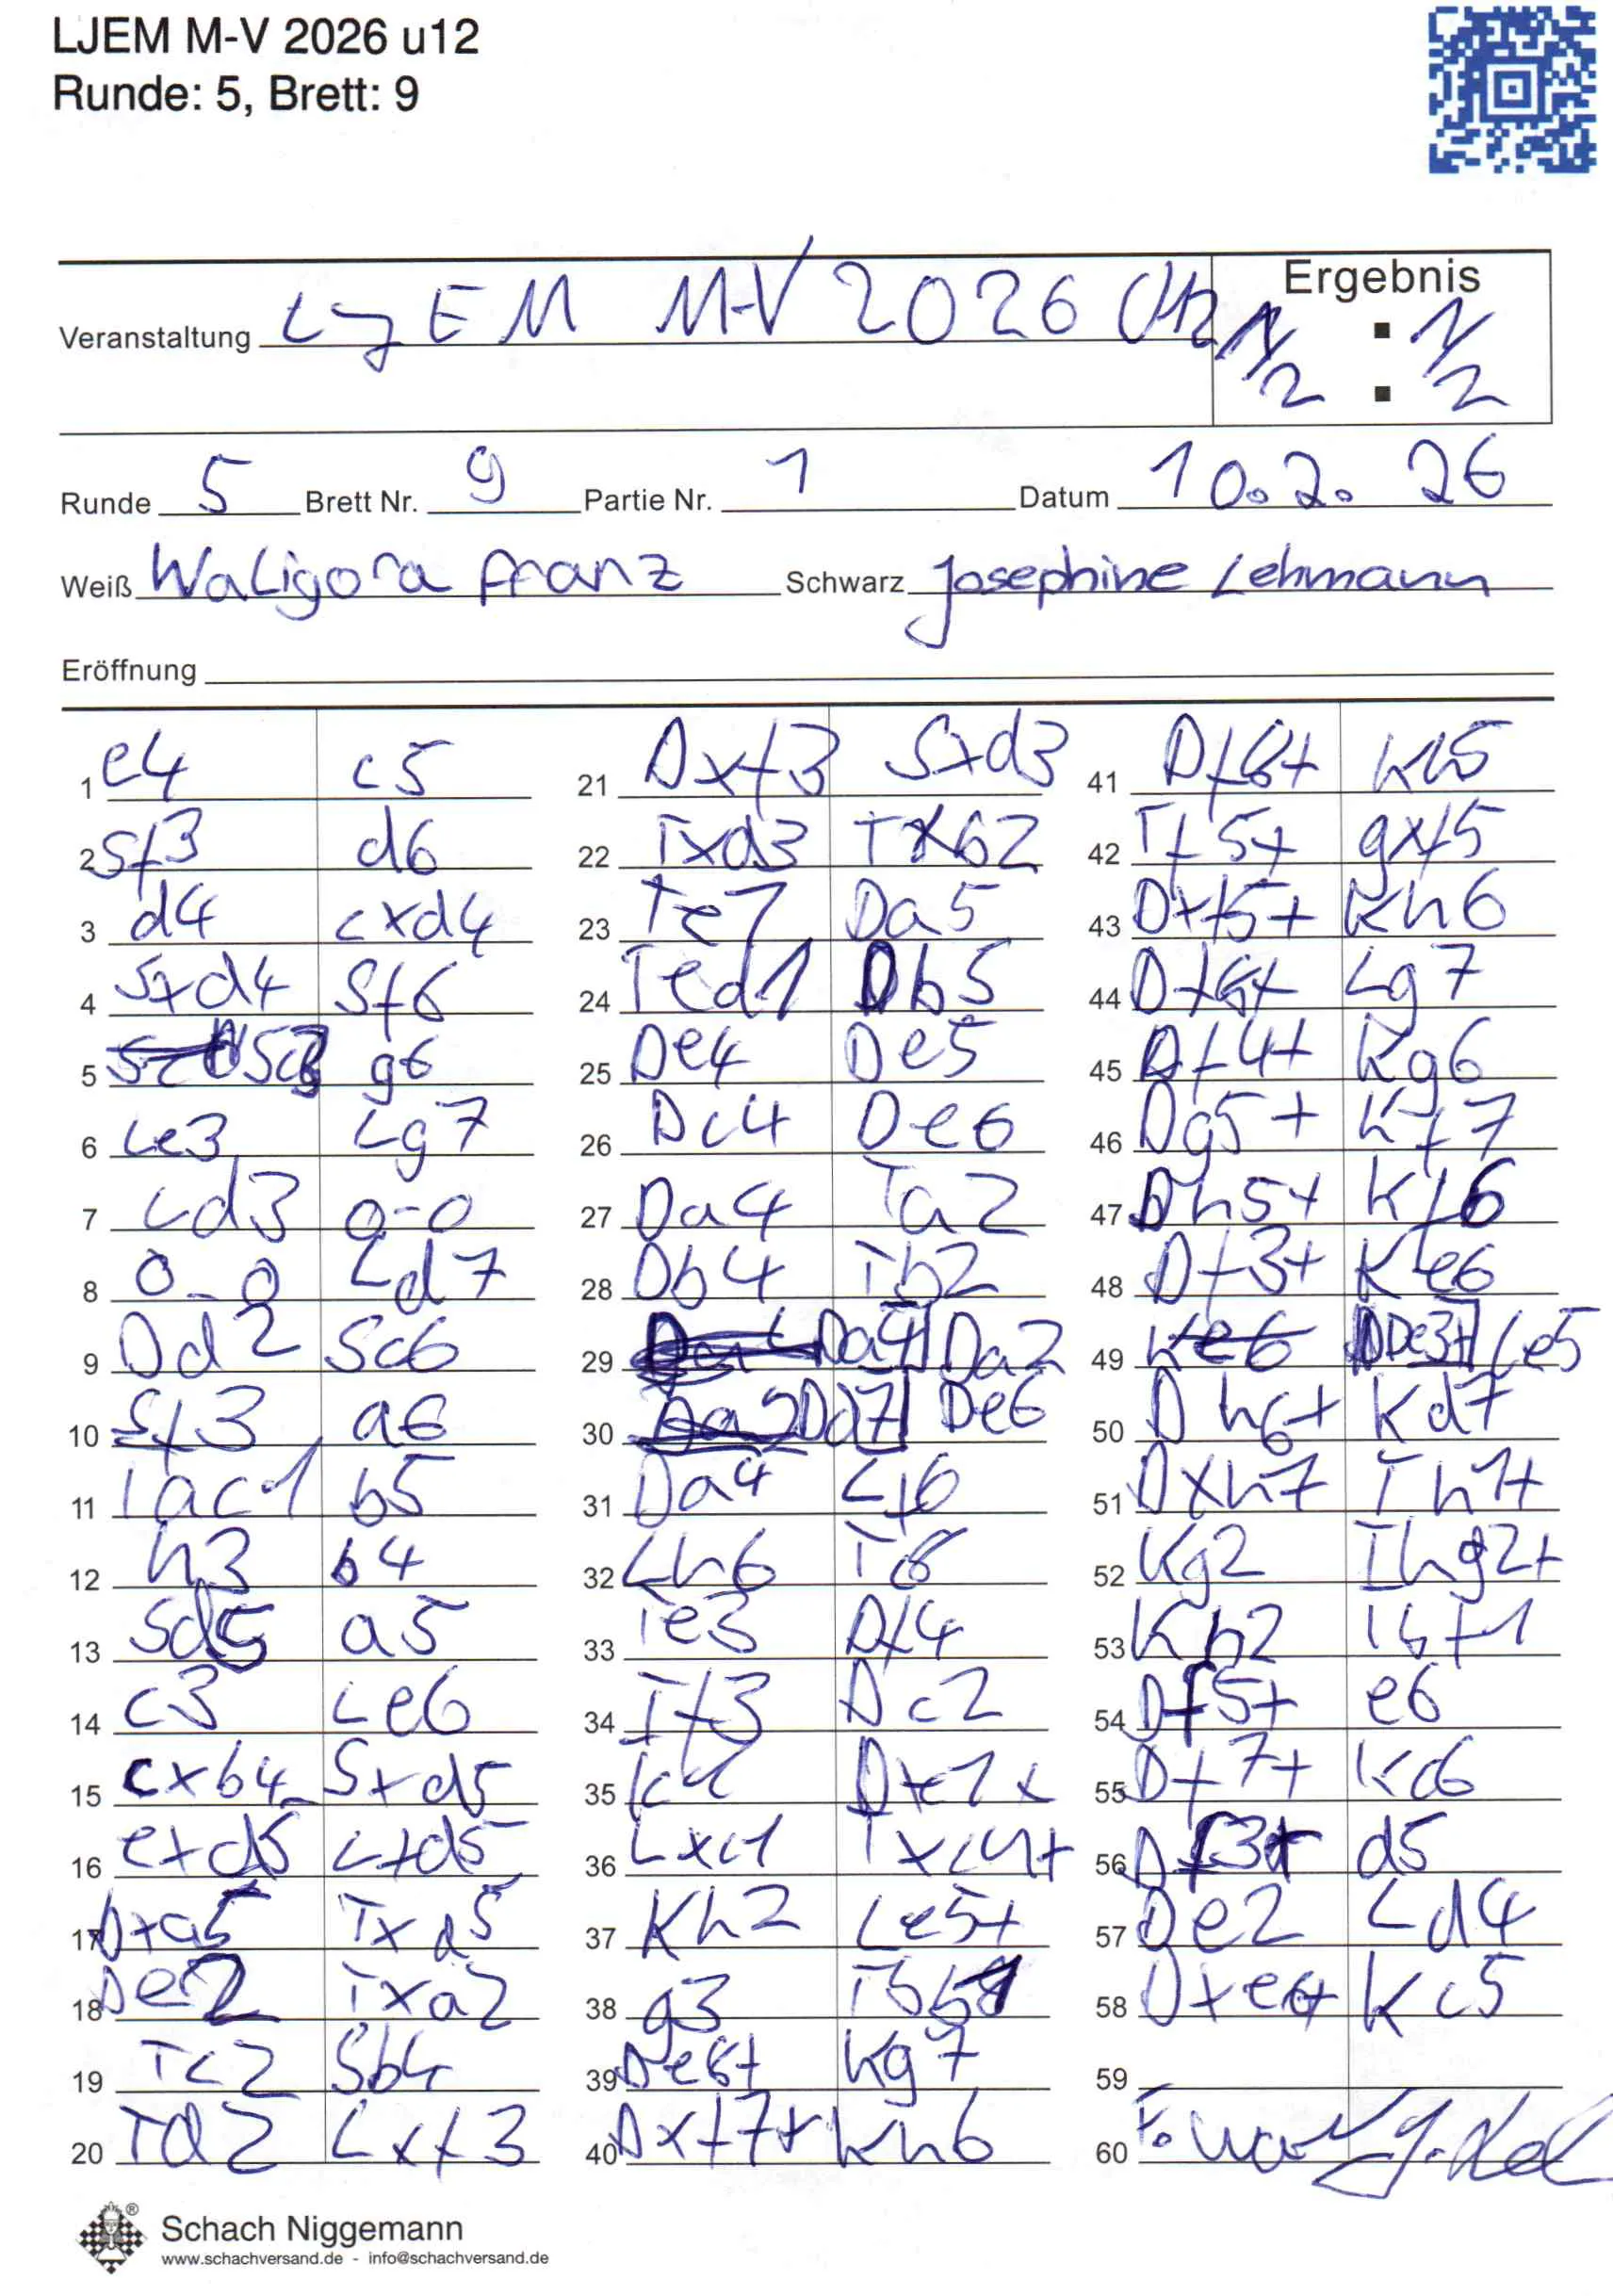 LJEM M-V 2026 u12
Runde: 5, Brett: 9
Ergebnis
Veranstaltung LjEM M-V 2026 U12 1/2 : 1/2
Runde 5 Brett Nr. 9 Partie Nr. 1 Datum 10.2.26
Weiß Waligora franz Schwarz Josephine Lehmann
Eröffnung
1 e4 c5
2 Sf3 d6
3 d4 cxd4
4 Sxd4 Sf6
5 Sc3 g6
6 Le3 Lg7
7 Ld3 0-0
8 0-0 Ld7
9 Dd2 Sc6
10 Sf3 a6
11 Tac1 b5
12 h3 b4
13 Sd5 a5
14 c3 Le6
15 cxb4 Sxd5
16 exd5 Lxd5
17 Dxa5 Txa5
18 De2 Txa2
19 Tc2 Sb4
20 Td2 Lxf3
21 Dxf3 Sxd3
22 Txd3 Txb2
23 Te1 Da5
24 Ted1 Db5
25 De4 De5
26 Dc4 De6
27 Da4 Ta2
28 Db4 Tb2
29 Da4 Da2
30 Dd7 De6
31 Da4 Lf6
32 Lh6 Tc8
33 Te3 Df4
34 Tf3 Dc2
35 Dxc1x
36 Lxc1 Txc1+
37 Kh2 Le5+
38 g3 Tbb1
39 De8+ Kg7
40 Dxf7+ Kh6
41 Df8+ Kh5
42 Tf5+ gxf5
43 Dxf5+ Kh6
44 Df8+ Lg7
45 Df4+ Kg6
46 Dg5+ Kf7
47 Dh5+ Kf6
48 Df3+ Ke6
49 Ke6 De3+ Le5
50 Dh6+ Kd7
51 Dxh7 Th1+
52 Kg2 Thg2+
53 Kh2 Tbf1
54 Df5+ e6
55 Df7+ Kc6
56 Df3+ d5
57 De2 Ld4
58 Dxe6+ Kc5
59
60
Schach Niggemann
www.schachversand.de - info@schachversand.de